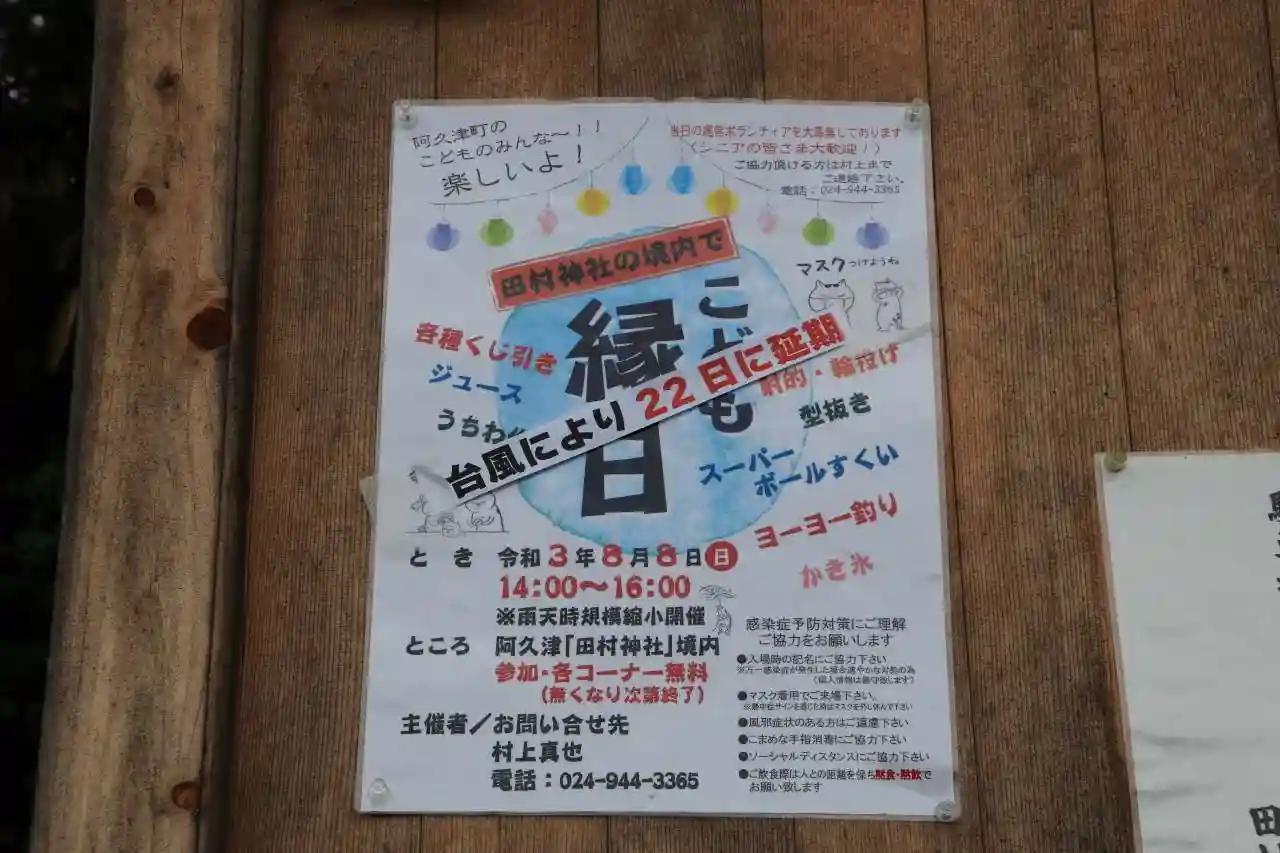 阿久津町の
こどものみんな〜！！
楽しいよ！
当日の運営ボランティアを大募集しております
（シニアの皆さま大歓迎！）
ご協力頂ける方は村上まで
ご連絡下さい。
電話：024-944-3365
田村神社の境内で
こども
縁日
マスクつけようね
台風により22日に延期
各種くじ引き
ジュース
うちわ
射的・輪投げ
型抜き
スーパー
ボールすくい
ヨーヨー釣り
かき氷
とき 令和3年8月8日日
14:00〜16:00
※雨天時規模縮小開催
ところ 阿久津「田村神社」境内
参加・各コーナー無料
（無くなり次第終了）
主催者／お問い合せ先
村上真也
電話：024-944-3365
感染症予防対策にご理解
ご協力をお願いします
●入場時の記名にご協力下さい
※万一感染症が発生した場合速やかな対処の為
（個人情報は厳守致します）
●マスク着用でご来場下さい。
※熱中症サインを感じた時はマスクを外し休んで下さい
●風邪症状のある方はご遠慮下さい
●こまめな手指消毒にご協力下さい
●ソーシャルディスタンスにご協力下さい
●ご飲食際は人との距離を保ち黙食・黙飲で
お願い致します
田